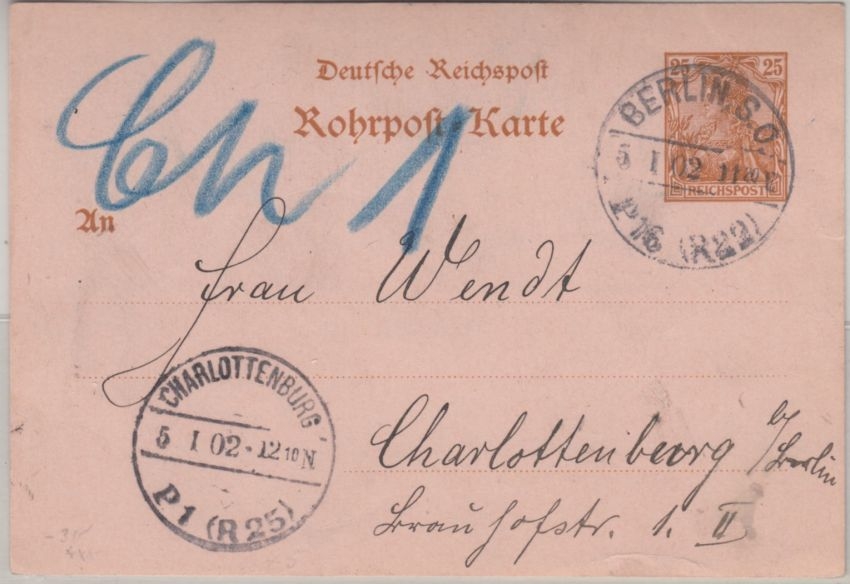 Deutsche Reichspost
Rohrpost-Karte
25 25
REICHSPOST
BERLIN. S.O.
5 1 02 11 V
P16 (R22)
Ch 1
An
Frau Wendt
CHARLOTTENBURG
5 1 02 · 12 10 N
P1 (R25)
Charlottenburg b/Berlin
Brauhofstr. 1. II